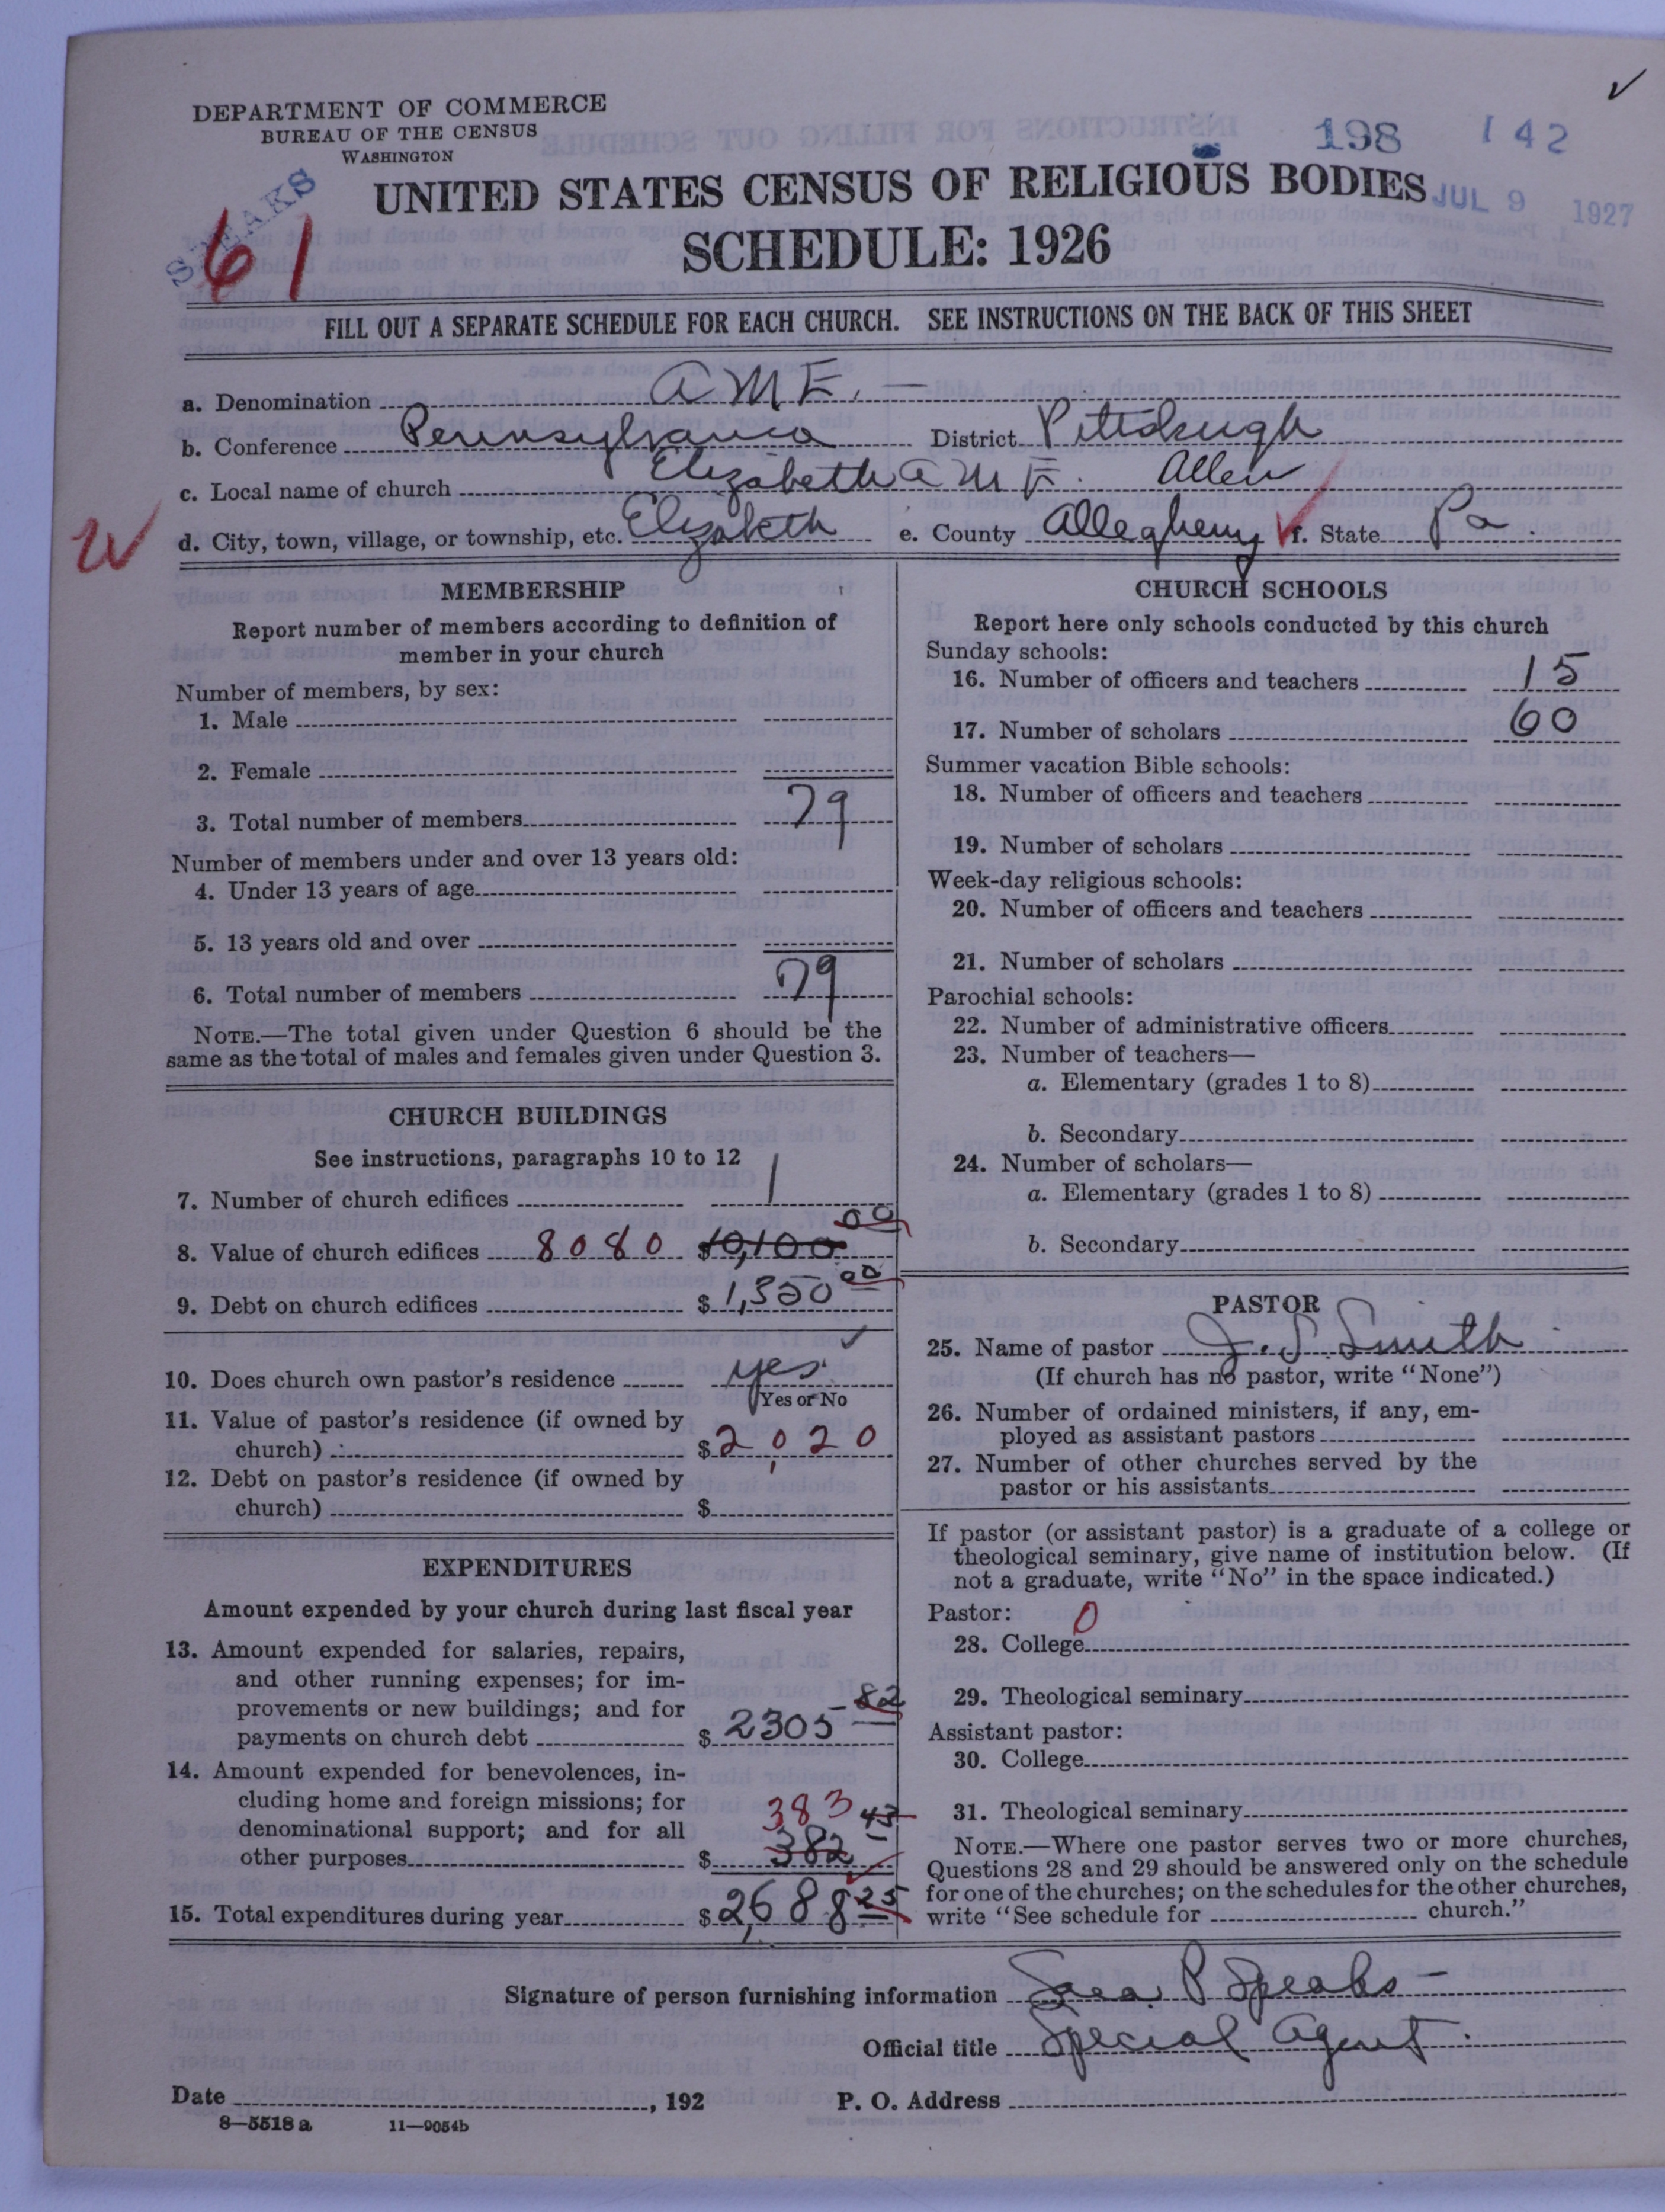 DEPARTMENT OF COMMERCE
BUREAU OF THE CENSUS
WASHINGTON
198 142
UNITED STATES CENSUS OF RELIGIOUS BODIES
JUL 9 1927
SPEAKS
61
SCHEDULE: 1926
FILL OUT A SEPARATE SCHEDULE FOR EACH CHURCH. SEE INSTRUCTIONS ON THE BACK OF THIS SHEET
a. Denomination A M E. —
b. Conference Pennsylvania District Pittsburgh
c. Local name of church Elizabeth A M E. Allen
d. City, town, village, or township, etc. Elizabeth e. County Allegheny f. State Pa
MEMBERSHIP
Report number of members according to definition of
member in your church
Number of members, by sex:
1. Male
2. Female
3. Total number of members 79
Number of members under and over 13 years old:
4. Under 13 years of age
5. 13 years old and over
6. Total number of members 79
NOTE.—The total given under Question 6 should be the
same as the total of males and females given under Question 3.
CHURCH BUILDINGS
See instructions, paragraphs 10 to 12
7. Number of church edifices 1
8. Value of church edifices 8080 $10,100 00
9. Debt on church edifices $1,350 00
10. Does church own pastor's residence yes
Yes or No
11. Value of pastor's residence (if owned by
church) $2,020
12. Debt on pastor's residence (if owned by
church) $
EXPENDITURES
Amount expended by your church during last fiscal year
13. Amount expended for salaries, repairs,
and other running expenses; for im-
provements or new buildings; and for
payments on church debt $2305 82
14. Amount expended for benevolences, in-
cluding home and foreign missions; for
denominational support; and for all
383 43
other purposes $382
15. Total expenditures during year $2,688 25
CHURCH SCHOOLS
Report here only schools conducted by this church
Sunday schools:
16. Number of officers and teachers 15
17. Number of scholars 60
Summer vacation Bible schools:
18. Number of officers and teachers
19. Number of scholars
Week-day religious schools:
20. Number of officers and teachers
21. Number of scholars
Parochial schools:
22. Number of administrative officers
23. Number of teachers—
a. Elementary (grades 1 to 8)
b. Secondary
24. Number of scholars—
a. Elementary (grades 1 to 8)
b. Secondary
PASTOR
25. Name of pastor J. S. Smith
(If church has no pastor, write "None")
26. Number of ordained ministers, if any, em-
ployed as assistant pastors
27. Number of other churches served by the
pastor or his assistants
If pastor (or assistant pastor) is a graduate of a college or
theological seminary, give name of institution below. (If
not a graduate, write "No" in the space indicated.)
Pastor: 0
28. College
29. Theological seminary
Assistant pastor:
30. College
31. Theological seminary
NOTE.—Where one pastor serves two or more churches,
Questions 28 and 29 should be answered only on the schedule
for one of the churches; on the schedules for the other churches,
write "See schedule for church."
Signature of person furnishing information Sara P Speaks —
Official title Special Agent.
Date , 192 P. O. Address
8—5518 a 11—9054b